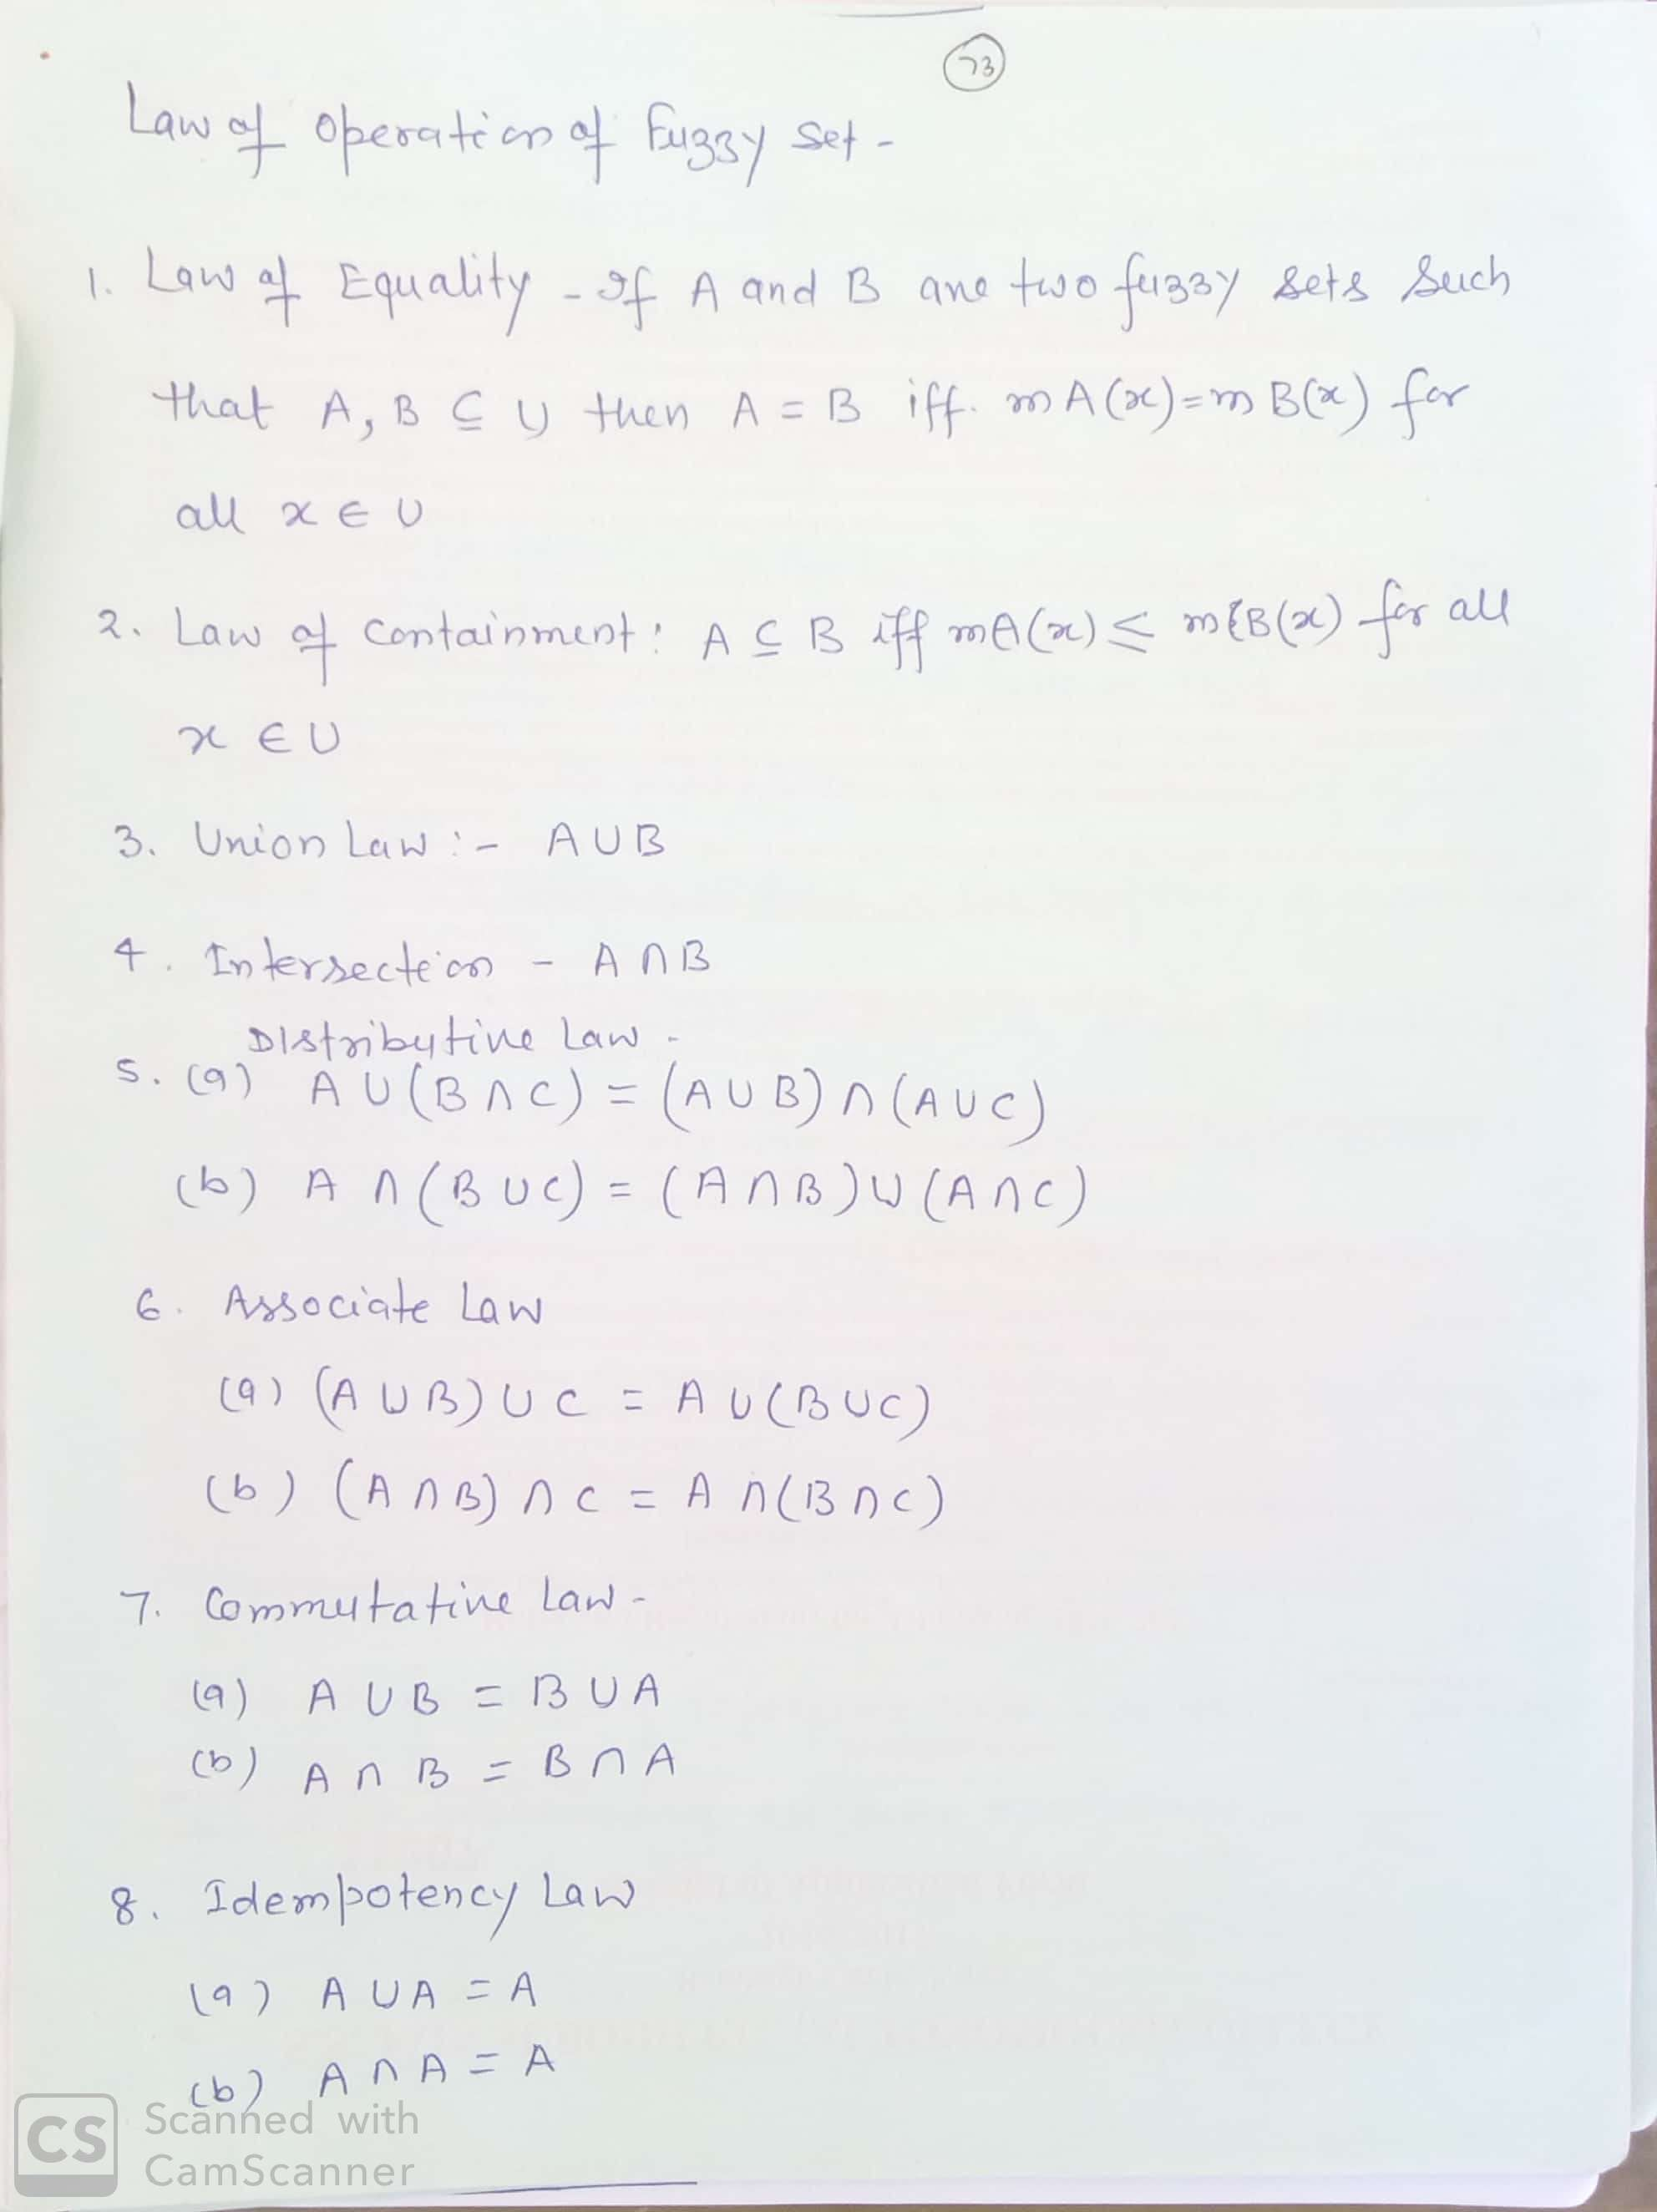 73
Law of Operation of Fuzzy Set -
1. Law of Equality - If A and B are two fuzzy sets such
that A, B ⊆ U then A = B iff. m A(x) = m B(x) for
all x ∈ U
2. Law of Containment : A ⊆ B iff mA(x) ≤ m B(x) for all
x ∈ U
3. Union Law :- A ∪ B
4. Intersection - A ∩ B
Distributive Law -
5. (a) A ∪ (B ∩ C) = (A ∪ B) ∩ (A ∪ C)
(b) A ∩ (B ∪ C) = (A ∩ B) ∪ (A ∩ C)
6. Associate Law
(a) (A ∪ B) ∪ C = A ∪ (B ∪ C)
(b) (A ∩ B) ∩ C = A ∩ (B ∩ C)
7. Commutative Law -
(a) A ∪ B = B ∪ A
(b) A ∩ B = B ∩ A
8. Idempotency Law
(a) A ∪ A = A
(b) A ∩ A = A
CS Scanned with
CamScanner